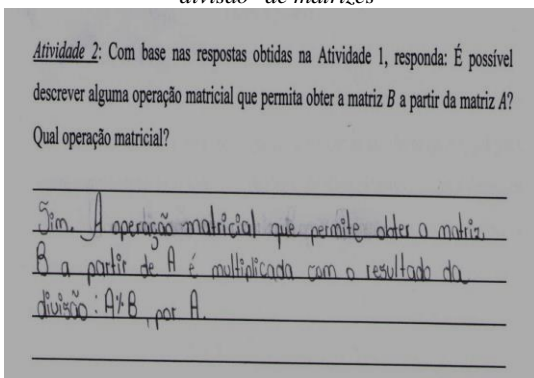 "divisão" de matrizes
Atividade 2: Com base nas respostas obtidas na Atividade 1, responda: É possível
descrever alguma operação matricial que permita obter a matriz B a partir da matriz A?
Qual operação matricial?
Sim. A operação matricial que permite obter a matriz
B a partir de A é multiplicada com o resultado da
divisão: A%B, por A.